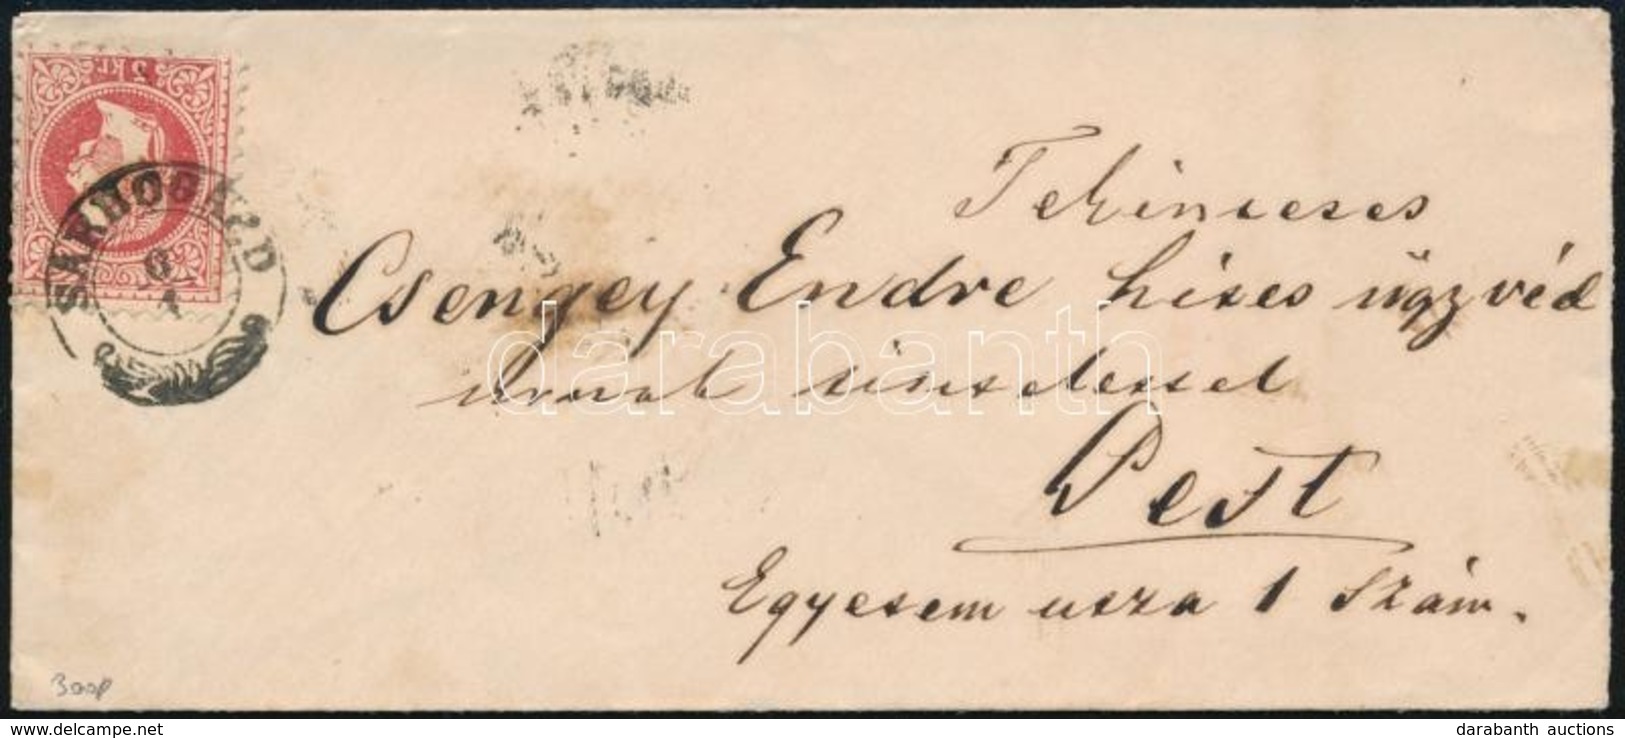 5 kr
SÁRBOGÁRD
9
1
Tekintetes
Csengey Endre hites ügyvéd
urnak tisztelettel
Pest
Egyetem utza 1 szám.
darabanth
www.delcampe.net
darabanth auctions